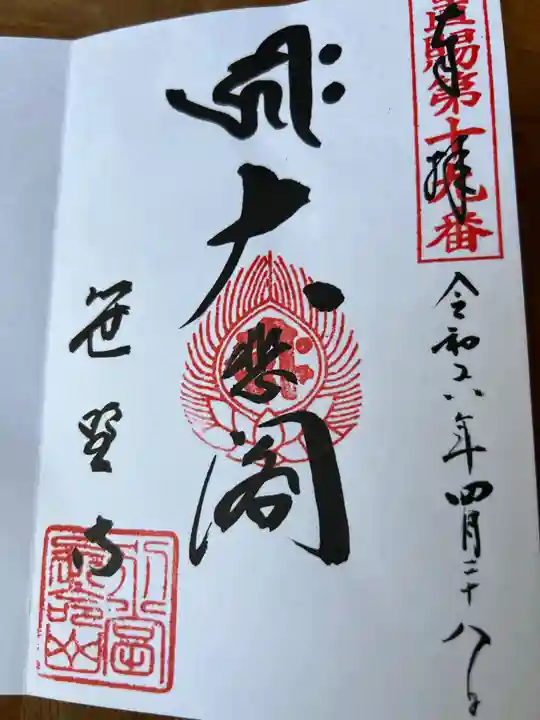 奉拝
置賜第十九番
令和六年四月二十八日
大悲閣
笹野寺